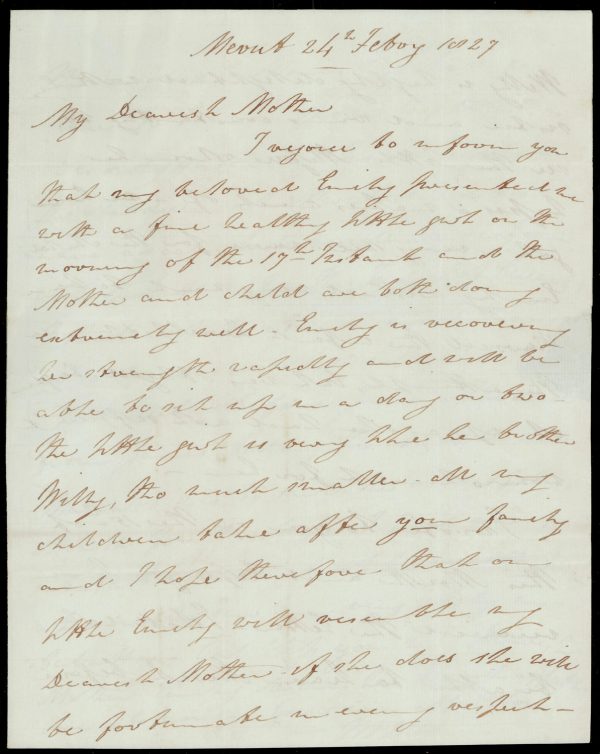 Merut 24th Febry 1827
My Dearest Mother
I rejoice to inform you
that my beloved Emily presented me
with a fine healthy little girl on the
morning of the 17th Instant and the
Mother and child are both doing
extremely well - Emily is recovering
her strength rapidly and will be
able to sit up in a day or two
the little girl is very like he brother
Willy, tho much smaller - all my
children take after your family
and I hope therefore that our
little Emily will resemble my
Dearest Mother - if she does she will
be fortunate in every respect -